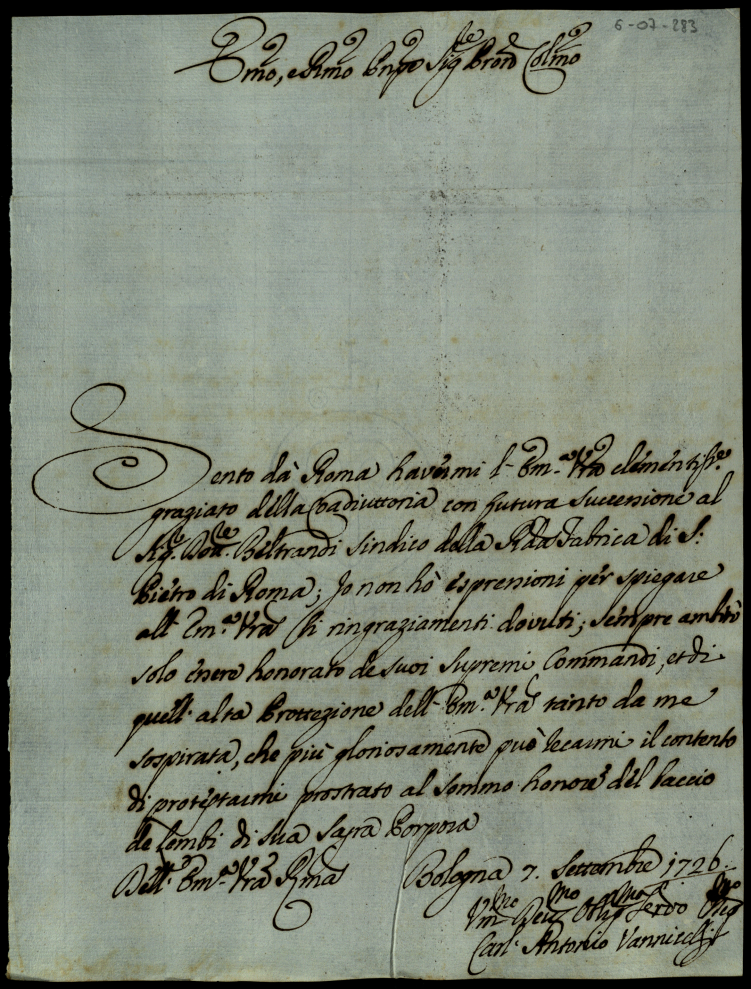 6-07-283
Emo, e Rmo Prnpe Sigre Prone Colmo
Sento dà Roma havermi l'Em.a Vra clementisse.
graziato della Coadiuttoria con futura successione al
Sigr. Dotre. Beltrandi sindico della Rda Fabrica di S:
Pietro di Roma; Jo non hò espressioni per spiegare
all'Em.a Vra li ringraziamenti dovuti; sempre ambirò
solo essere honorato de suoi supremi Commandi, et di
quell'alta Prottezione dell'Em.a Vra tanto da me
sospirata, che più gloriosamente può recarmi il contento
di protestarmi prostrato al sommo honore del baccio
de lembi di sua Sagra Porpora
Dell'Em.a Vra Rma
Bologna 7. Settembre 1726.
Vmo Devmo Obligmo Servo
Carl'Antonio Vannicelli